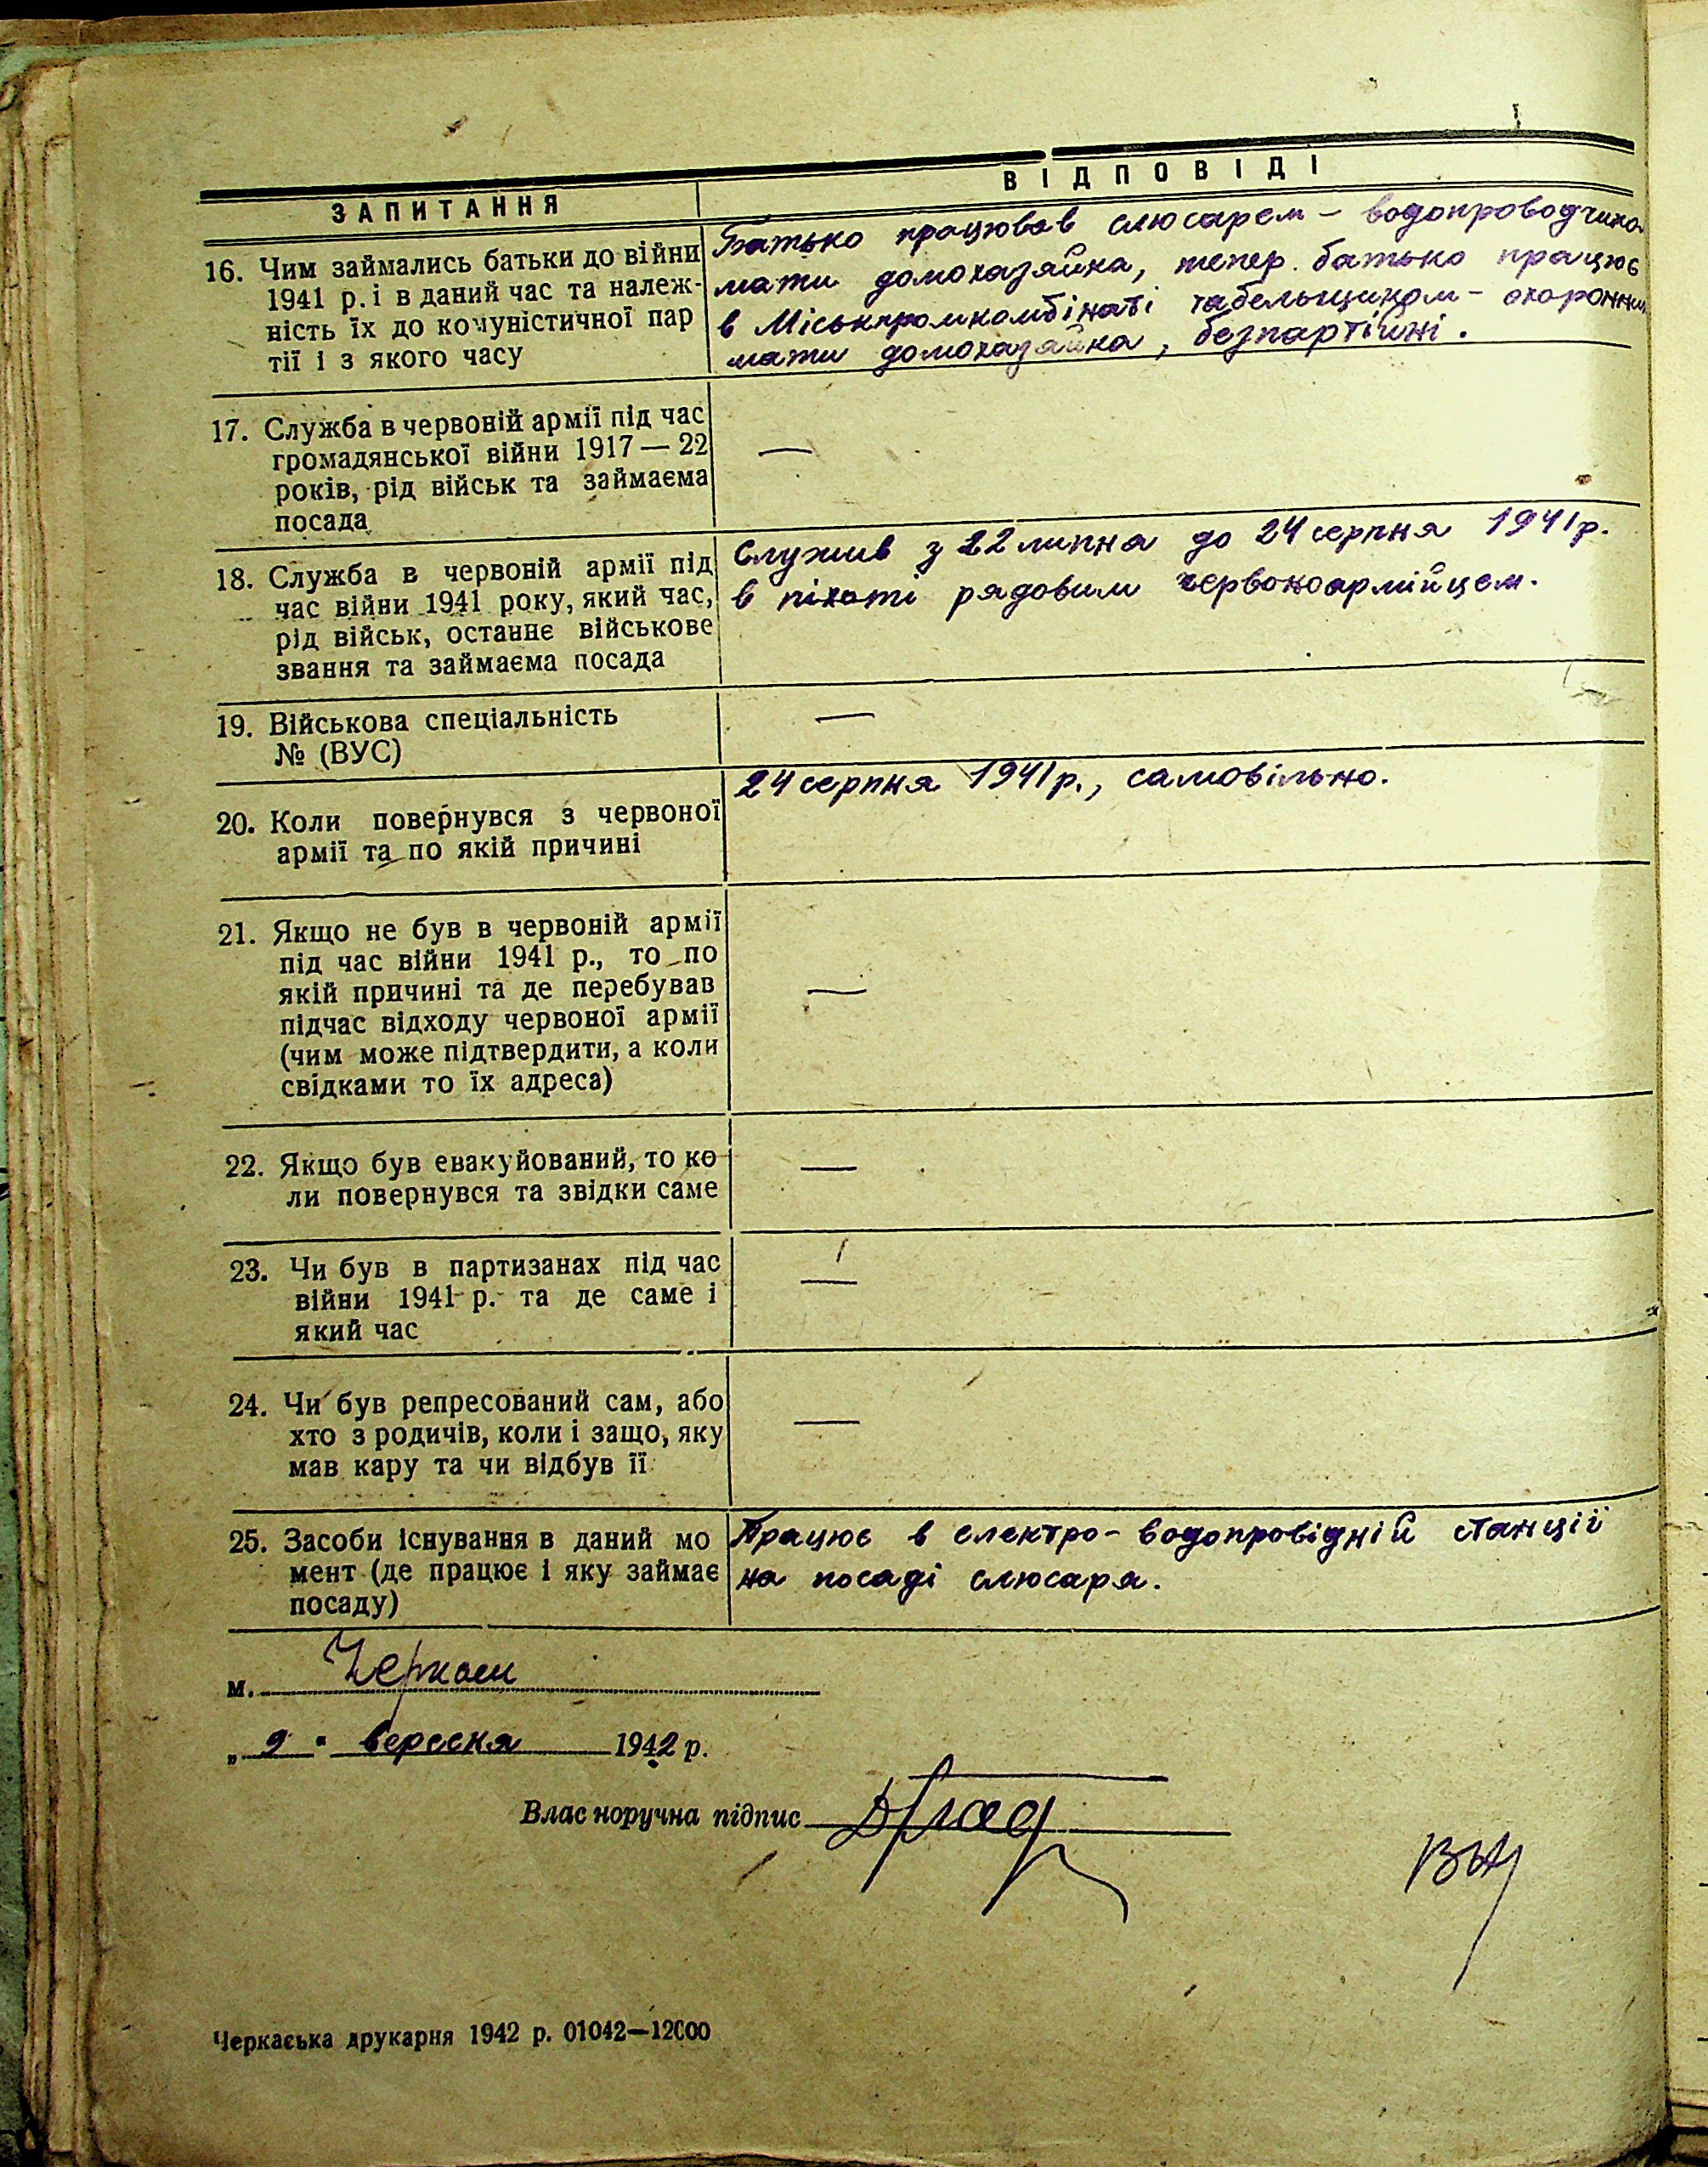 ЗАПИТАННЯ
ВІДПОВІДІ
16. Чим займались батьки до війни
1941 р. і в даний час та належ-
ність їх до комуністичної пар
тії і з якого часу
Батько працював слюсарем – водопроводчиком
мати домохазяйка, тепер батько працює
в Міськпромкомбінаті табельщиком – охоронник
мати домохазяйка, безпартійні.
17. Служба в червоній армії під час
громадянської війни 1917 — 22
років, рід військ та займаєма
посада
—
18. Служба в червоній армії під
час війни 1941 року, який час,
рід військ, останнє військове
звання та займаєма посада
Служив з 22 липня до 24 серпня 1941 р.
в піхоті рядовим червоноармійцем.
19. Військова спеціальність
№ (ВУС)
—
20. Коли повернувся з червоної
армії та по якій причині
24 серпня 1941 р., самовільно.
21. Якщо не був в червоній армії
під час війни 1941 р., то по
якій причині та де перебував
підчас відходу червоної армії
(чим може підтвердити, а коли
свідками то їх адреса)
—
22. Якщо був евакуйований, то ко
ли повернувся та звідки саме
—
23. Чи був в партизанах під час
війни 1941 р. та де саме і
який час
—
24. Чи був репресований сам, або
хто з родичів, коли і защо, яку
мав кару та чи відбув її
—
25. Засоби існування в даний мо
мент (де працює і яку займає
посаду)
Працює в електро-водопровідній станції
на посаді слюсаря.
м. Черкаси
„ 9 " вересня 1942 р.
Влас норучна підпис
Черкаська друкарня 1942 р. 01042—12000